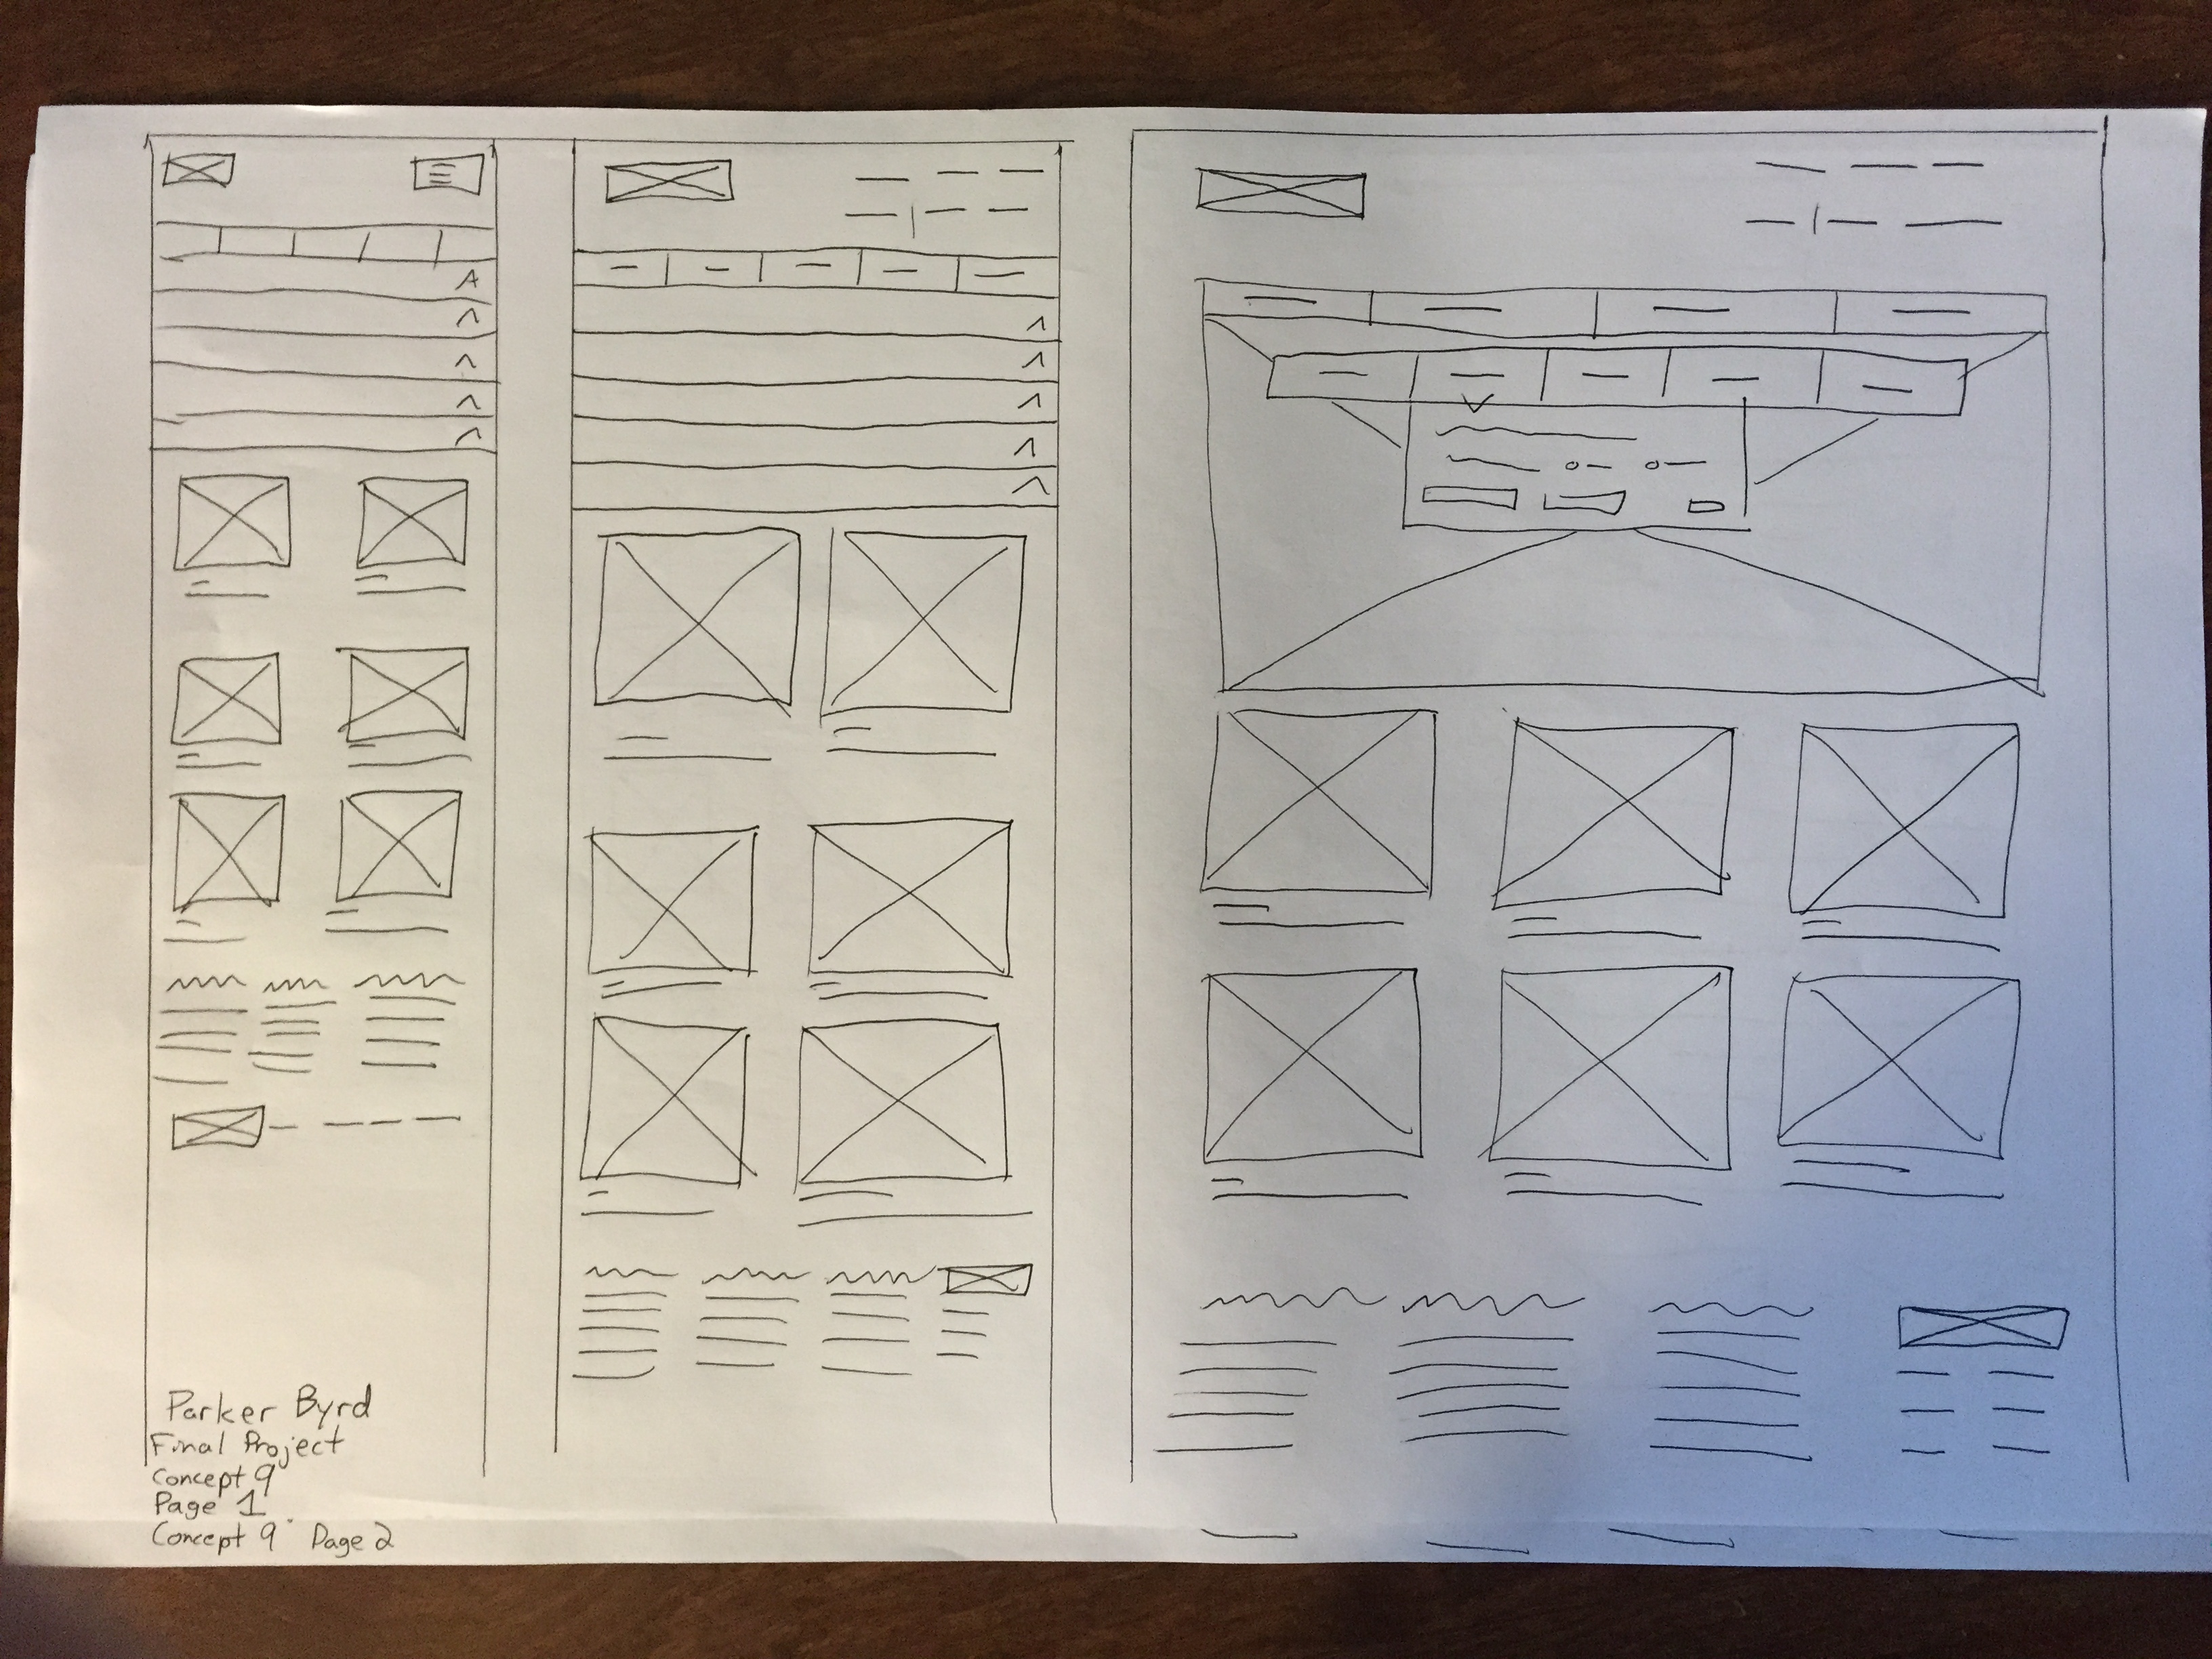 Parker Byrd
Final Project
Concept 9
Page 1
Concept 9 Page 2